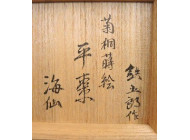 菊桐蒔絵
平棗
海仙
鉄五郎作